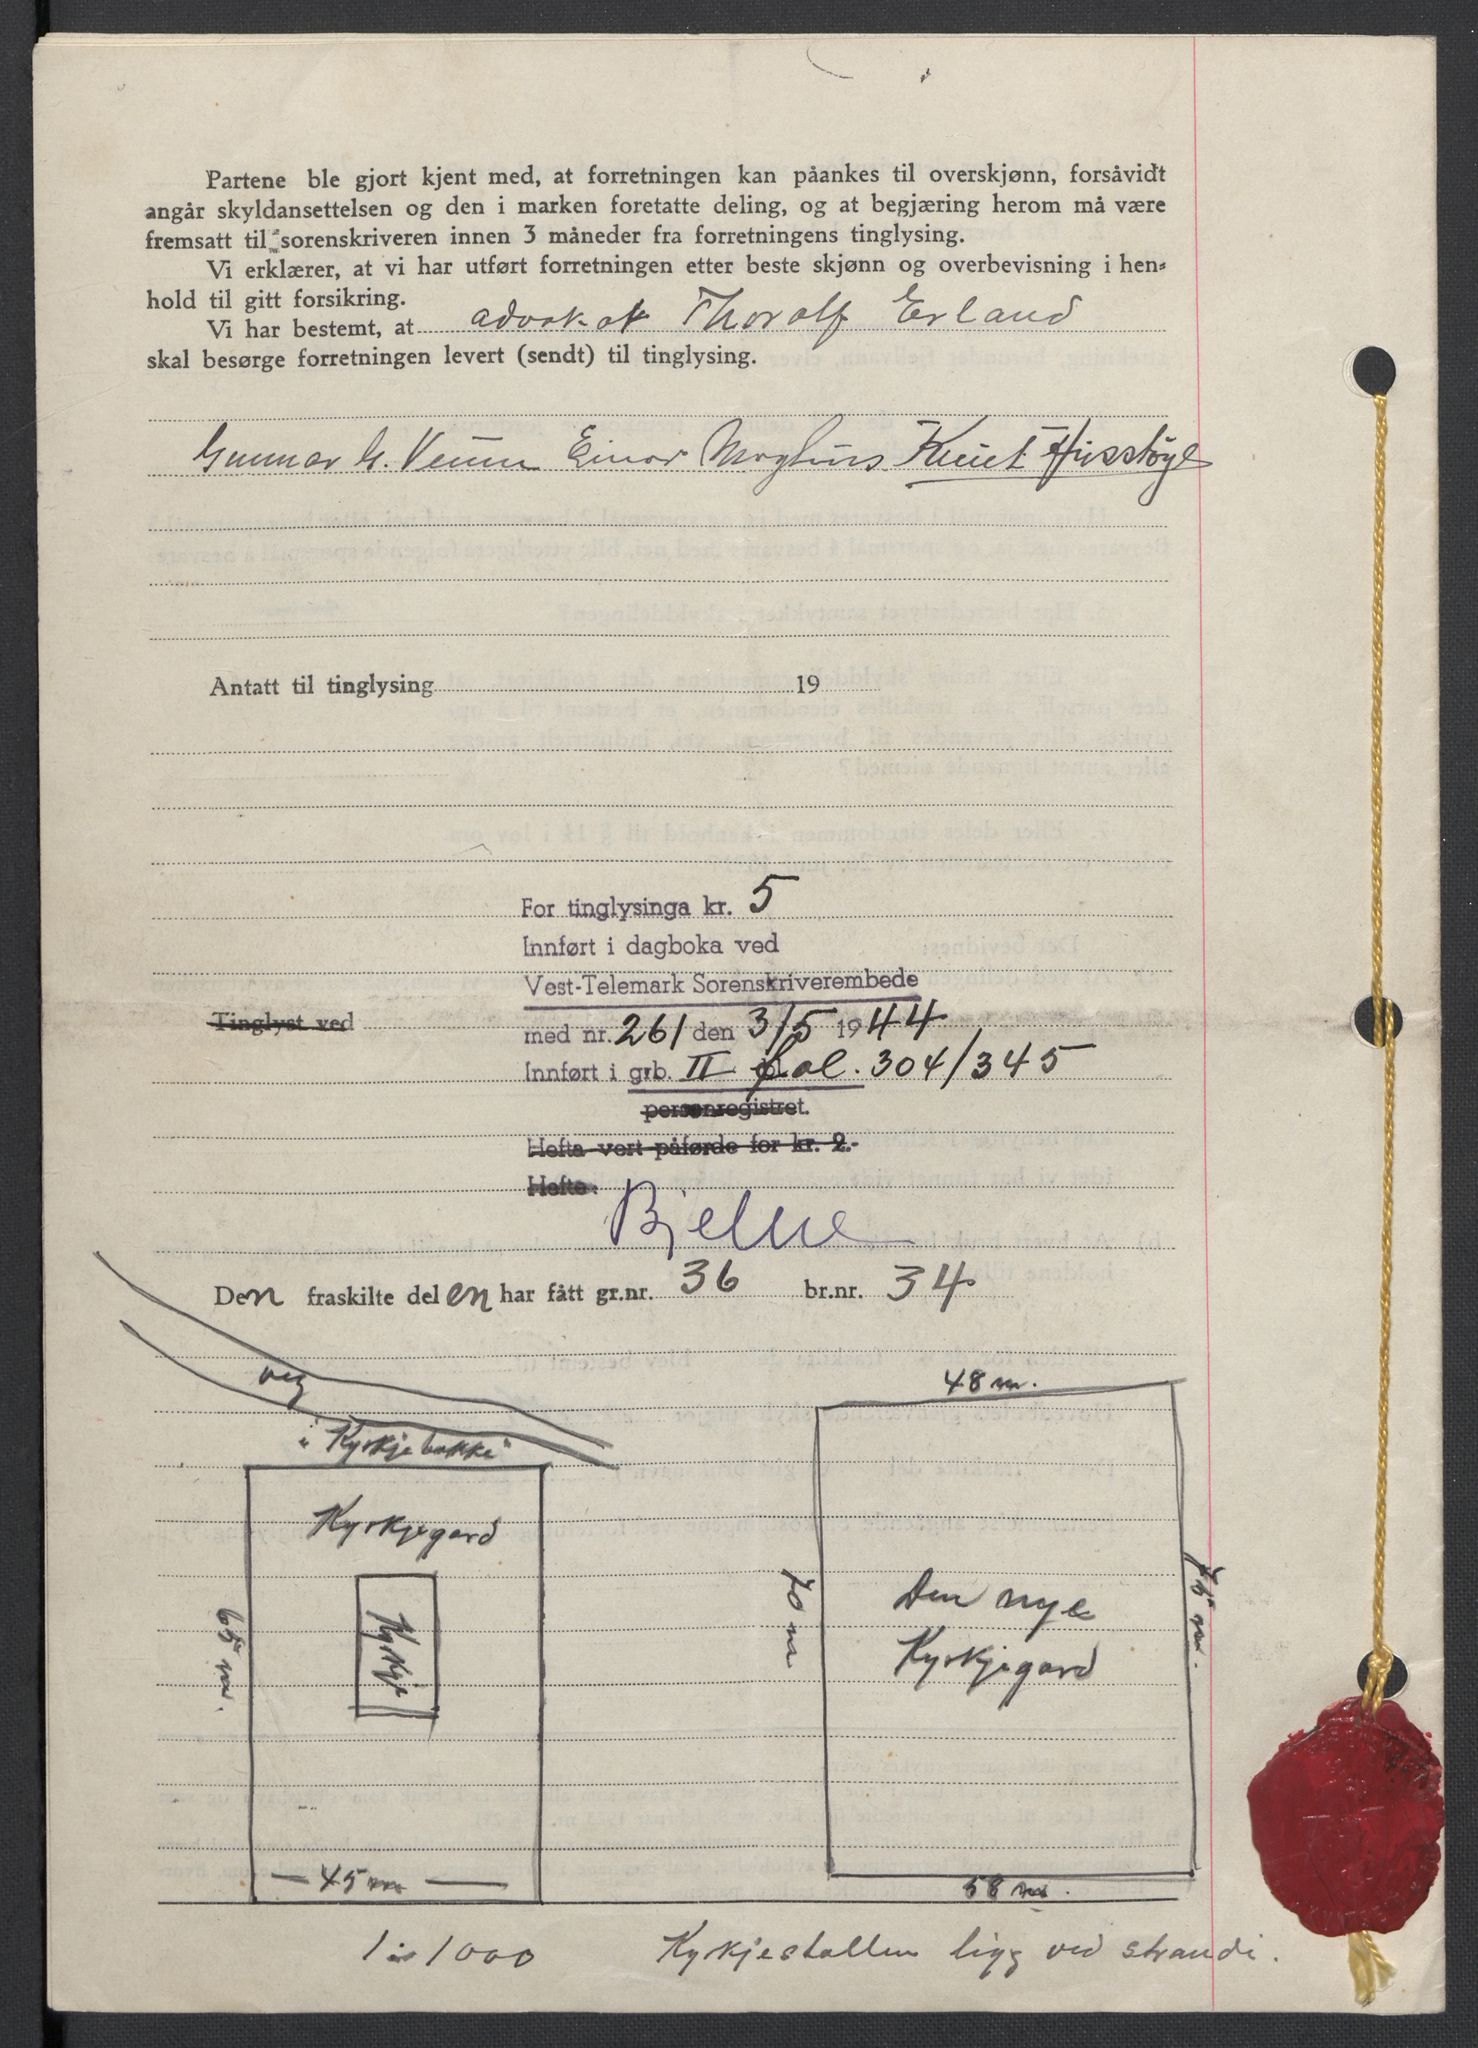 Partene ble gjort kjent med, at forretningen kan påankes til overskjønn, forsåvidt
angår skyldansettelsen og den i marken foretatte deling, og at begjæring herom må være
fremsatt til sorenskriveren innen 3 måneder fra forretningens tinglysing.
Vi erklærer, at vi har utført forretningen etter beste skjønn og overbevisning i hen-
hold til gitt forsikring.
Vi har bestemt, at advokat Thoralf Erland
skal besørge forretningen levert (sendt) til tinglysing.
Gunnar G. Einar Knut
Antatt til tinglysing 19
For tinglysinga kr. 5
Innført i dagboka ved
Vest-Telemark Sorenskriverembede
Tinglyst ved
med nr. 261 den 3/5 1944
Innført i grb. II fol. 304/345
personregistret.
Hefta vert påførde for kr. 2.-
Hefte:
Den fraskilte delen har fått gr.nr. 36 br.nr. 34
veg
"Kyrkjebakke"
48 m.
Kyrkjegard
Kyrkje
65 m.
45 m
70 m
Den nye
Kyrkjegard
75 m.
58 m.
1:1000
Kyrkjestallen ligg ved strandi.